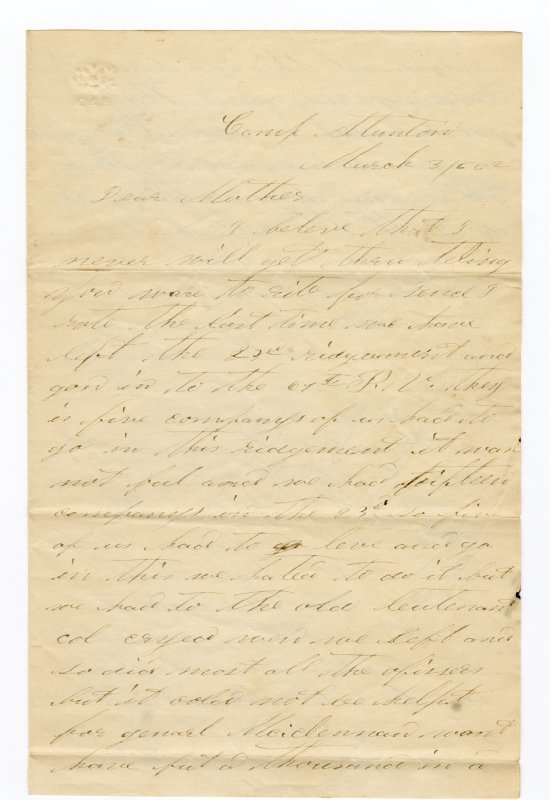 Camp Stanton
March
Dear Mother
I beleve that I
never will get thru teling
you ware to rite for send I
rote the last time we have
left the ridgement and
gon in to the P. V. they
is five companys of us had to
go in this ridgement it was
not ful and we had fifteen
companys in the 23d so five
of us had to leve and go
in this we hated to do it but
we had to the old leutenant
col cryed wen we left and
so did most all the ofissers
but it cold not be helpt
for genarl want
have but a thousand in a